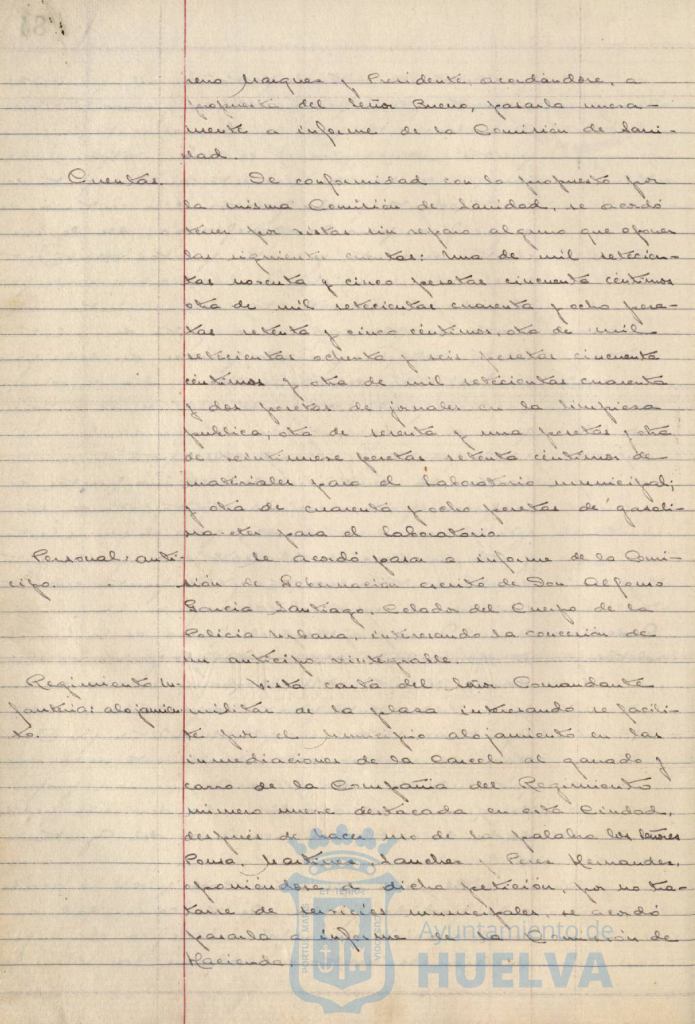 reno Marquez y Presidente, acordándose, a
propuesta del Señor Bueno, pasarla nueva-
mente a informe de la Comisión de Sani-
dad.
Cuentas. De conformidad con lo propuesto por
la misma Comisión de Sanidad, se acordó
tener por vistas sin reparo alguno que oponer
las siguientes cuentas: Una de mil setecien-
tas noventa y cinco pesetas cincuenta céntimos
otra de mil setecientas cuarenta y ocho pese-
tas setenta y cinco céntimos, otra de mil
setecientas ochenta y seis pesetas cincuenta
céntimos y otra de mil setecientas cuarenta
y dos pesetas de jornales en la limpieza
publica, otra de sesenta y una pesetas y otra
de veintinueve pesetas setenta céntimos de
materiales para el Laboratorio municipal;
y otra de cuarenta y ocho pesetas de gasoli-
na para el Laboratorio.
Personal: anti- Se acordó pasar a informe de la Comi-
cipo. sión de Gobernación escrito de Don Alfonso
Garcia Santiago, Celador del Cuerpo de la
Policia Urbana, interesando la concesión de
un anticipo reintegrable.
Regimiento In- Vista carta del Señor Comandante
fanteria: alojamien- militar de la plaza interesando se facili-
to. te por el Municipio alojamiento en las
inmediaciones de la Carcel al ganado y
carro de la Compañia del Regimiento
número nueve destacada en esta Ciudad,
después de hacer uso de la palabra los Señores
Ponsa, Martinez Sanchez y Perez Hernandez,
oponiendose a dicha petición, por no tra-
tarse de servicios municipales, se acordó
pasarla a informe de la Comisión de
Hacienda.
Ayuntamiento de
HUELVA